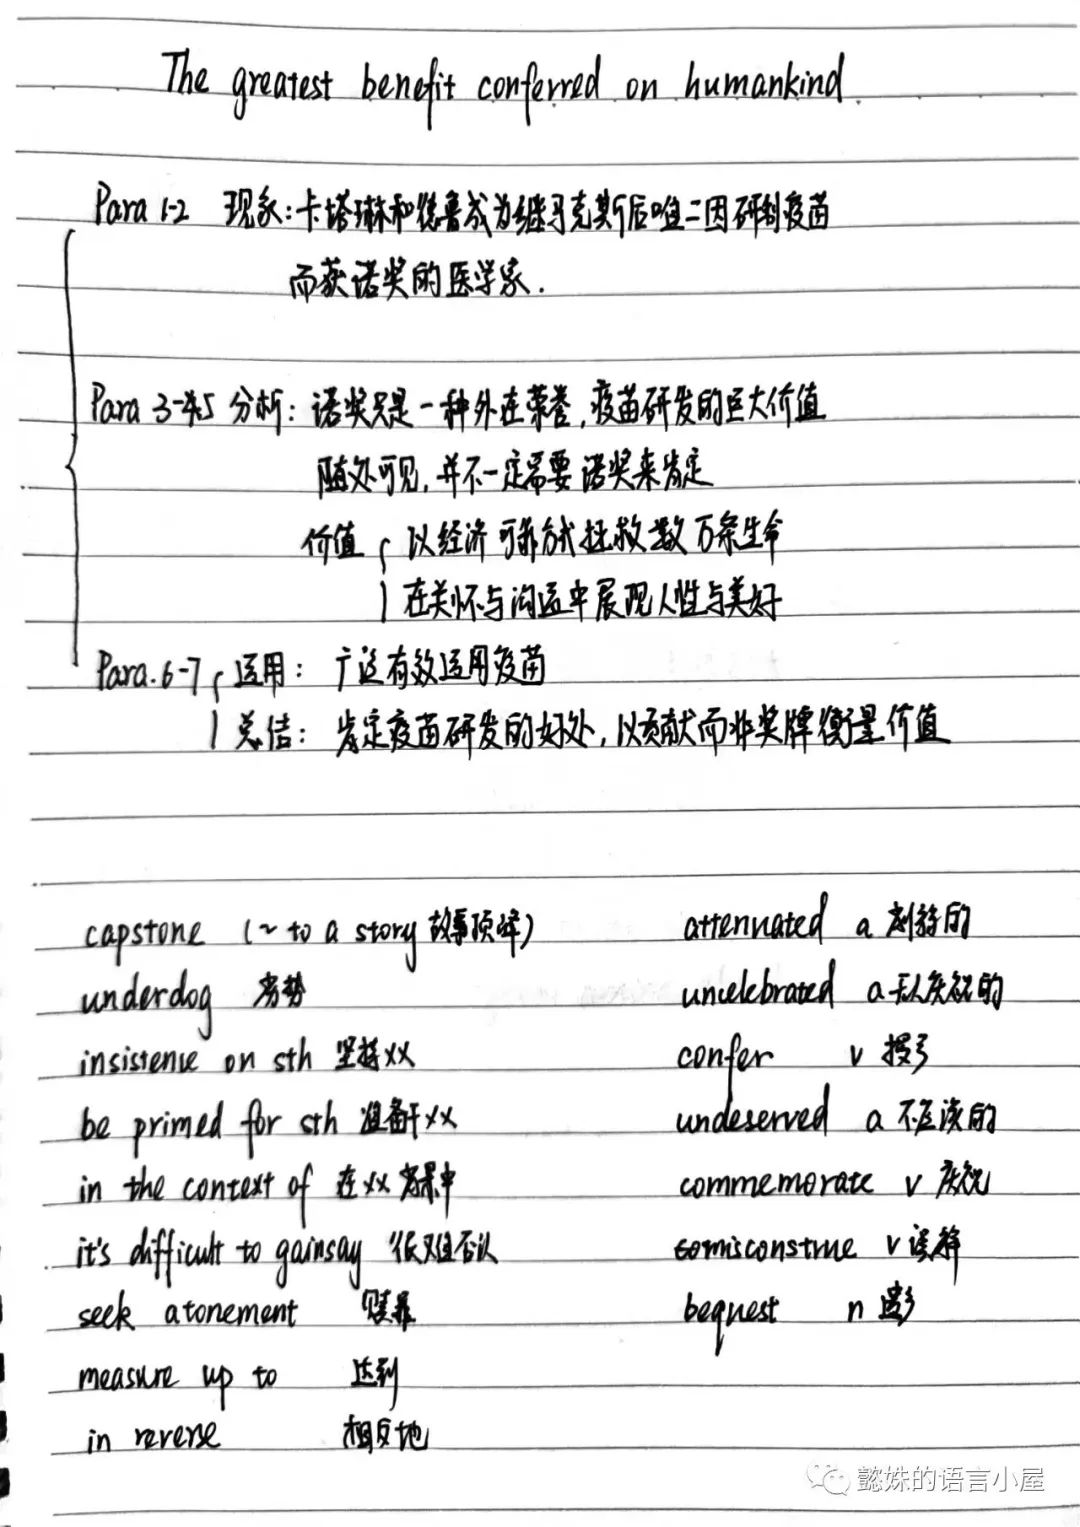 The greatest benefit conferred on humankind
Para 1-2 现象：卡塔琳和德鲁成为继马克斯后唯二因研制疫苗
而获诺奖的医学家.
Para 3-4.5 分析：诺奖只是一种外在荣誉,疫苗研发的巨大价值
随处可见,并不一定需要诺奖来肯定
价值 { 以经济可靠方式拯救数万条生命
在关怀与沟通中展现人性与美好
Para.6-7 { 运用： 广泛有效运用疫苗
总结： 肯定疫苗研发的好处,以贡献而非奖牌衡量价值
capstone (~ to a story 故事顶峰)
underdog 劣势
insistence on sth 坚持XX
be primed for sth 准备干XX
in the context of 在XX背景中
it's difficult to gainsay 很难否认
seek atonement 赎罪
measure up to 达到
in reverse 相反地
attenuated a
uncelebrated a 无人庆祝的
confer v 授予
undeserved a 不应该的
commemorate v 庆祝
misconstrue v 误解
bequest n
懿姝的语言小屋